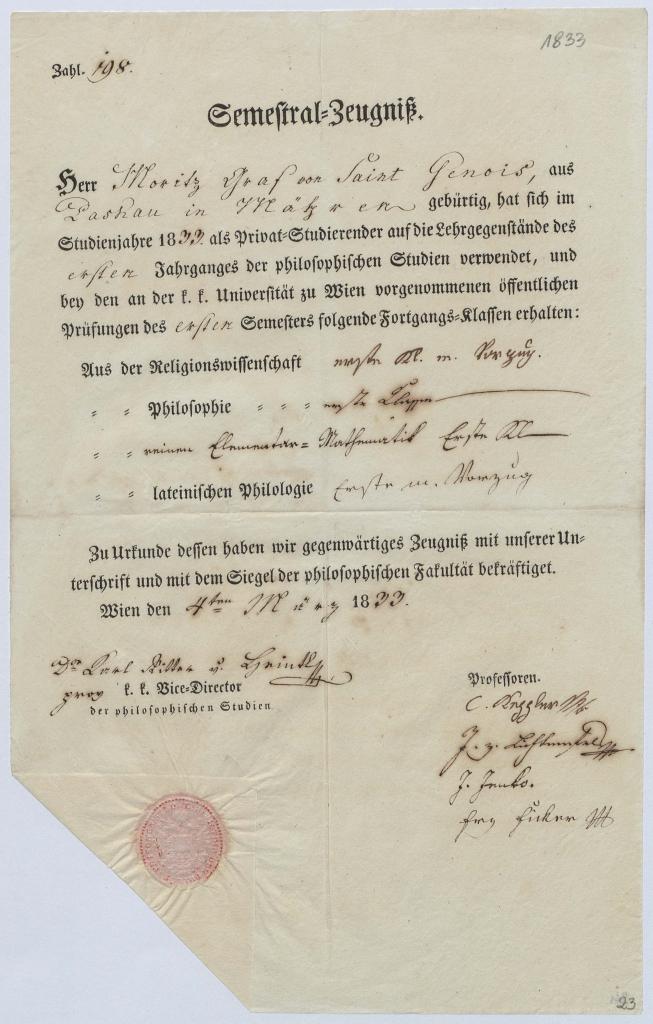 1833
Zahl. 198.
Semestral-Zeugniß.
Herr Moritz Graf von Saint Genois, aus
Paskau in Mähren gebürtig, hat sich im
Studienjahre 1833 als Privat-Studierender auf die Lehrgegenstände des
ersten Jahrganges der philosophischen Studien verwendet, und
bey den an der k. k. Universität zu Wien vorgenommenen öffentlichen
Prüfungen des ersten Semesters folgende Fortgangs-Klassen erhalten:
Aus der Religionswissenschaft erste Kl. m. Vorzug.
" " Philosophie " " " erste Klasse
" " reinen Elementar-Mathematik Erste Kl
" " lateinischen Philologie Erste m. Vorzug
Zu Urkunde dessen haben wir gegenwärtiges Zeugniß mit unserer Un-
terschrift und mit dem Siegel der philosophischen Fakultät bekräftiget.
Wien den 4ten März 1833.
Dr Karl Ritter v.
k. k. Vice-Director
der philosophischen Studien
Professoren.
J. Jenko.
Ficker
23